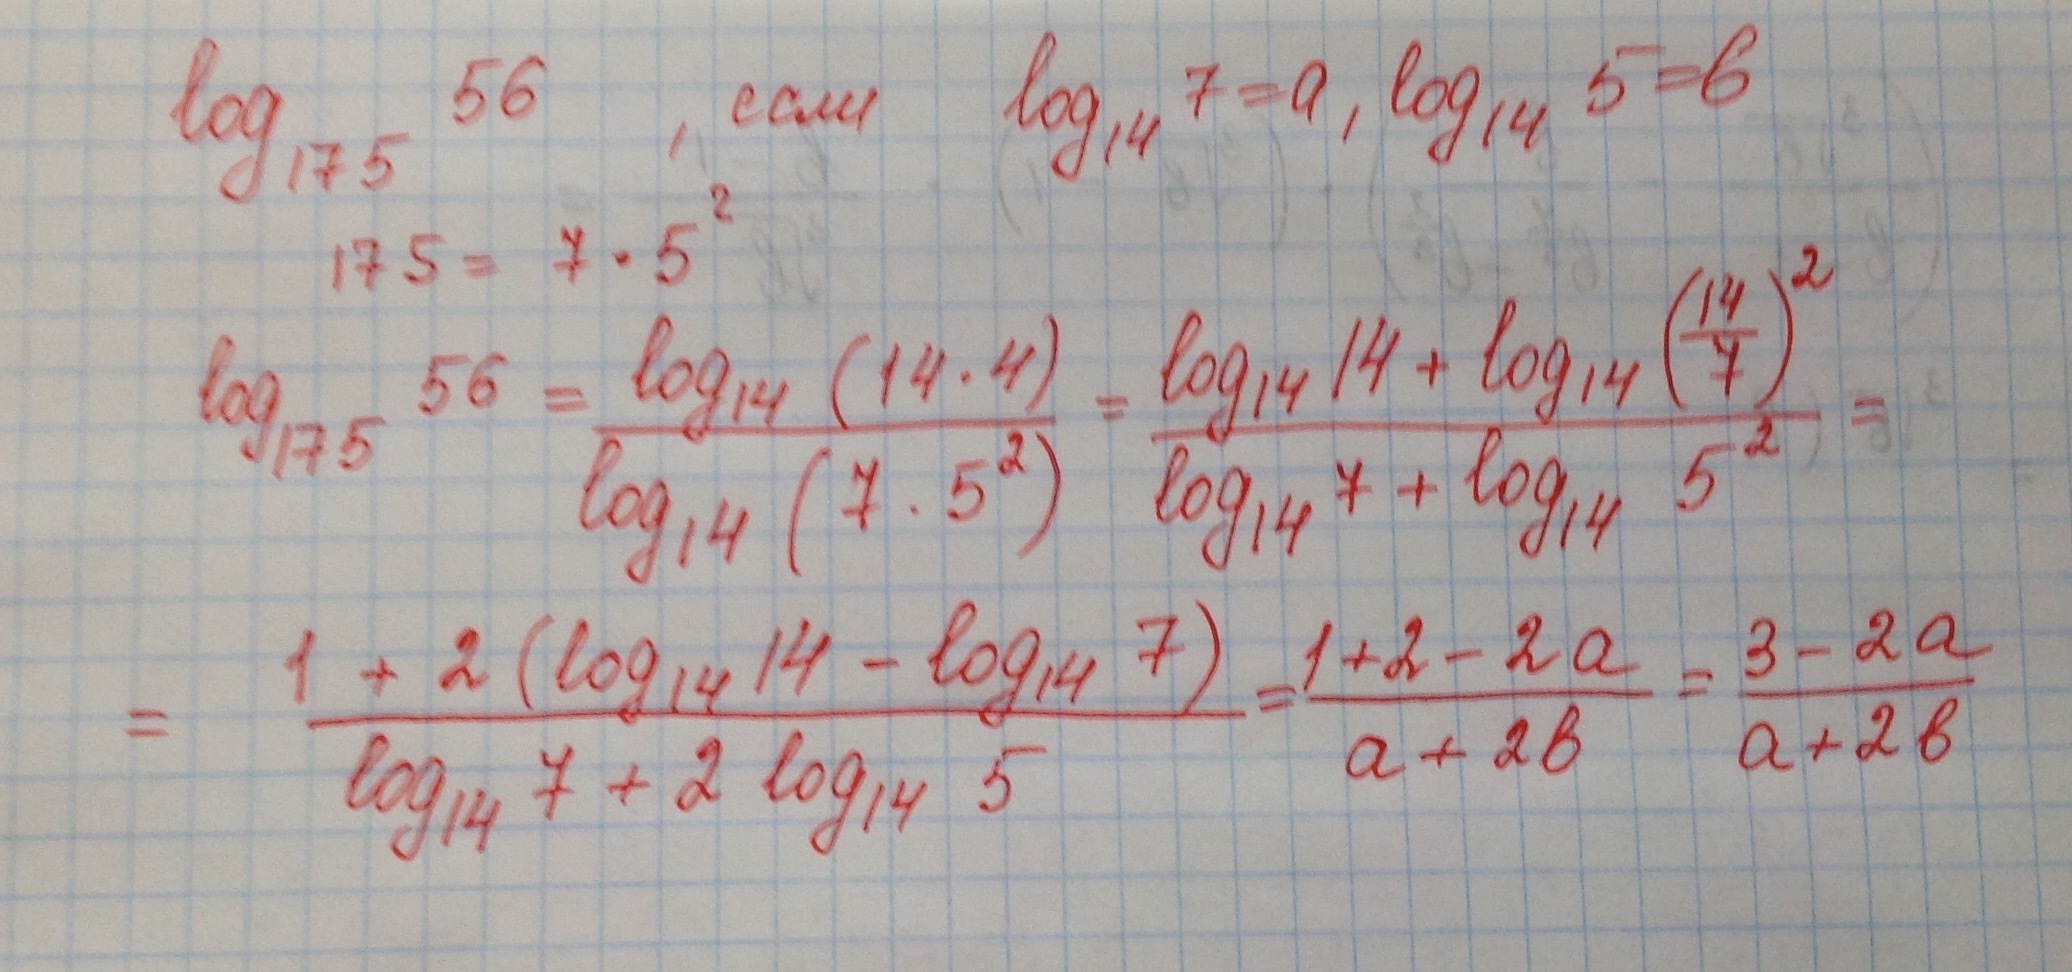 log₁₇₅ 56 , если log₁₄ 7 = a, log₁₄ 5 = b
175 = 7 · 5²
log₁₇₅ 56 = log₁₄ (14 · 4) / log₁₄ (7 · 5²) = (log₁₄ 14 + log₁₄ (14/7)²) / (log₁₄ 7 + log₁₄ 5²) =
= (1 + 2 (log₁₄ 14 − log₁₄ 7)) / (log₁₄ 7 + 2 log₁₄ 5) = (1 + 2 − 2a) / (a + 2b) = (3 − 2a) / (a + 2b)